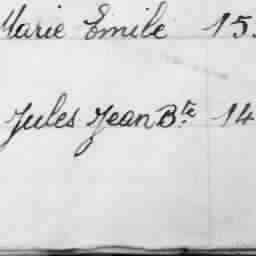 Marie Emile 15
Jules Jean Bte 14